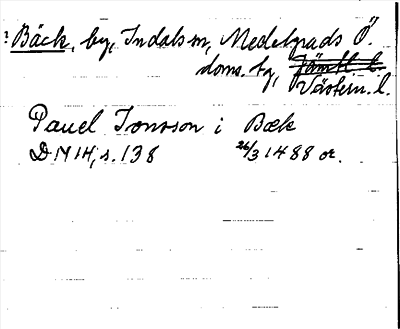 ? Bäck, by, Indals sn, Medelpads Ö.
doms. tg, Jämtl l.
Västern. l.
Pauel Jonsson i Bæk
DN 14, s. 138 26/3 1488 or.